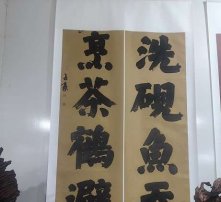 洗硯魚吞
烹茶鶴避